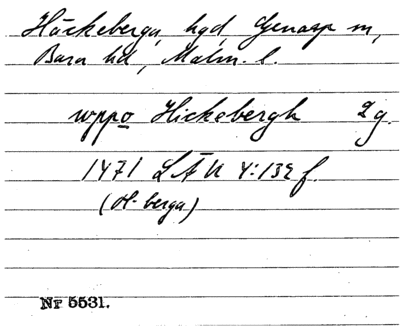 Häckeberga, hgd, Genarp sn,
Bara hd, Malm. l.
uppo Hickebergh 2 g.
1471 LÄU 4:132 f.
(H- berga)
Nr 5531.